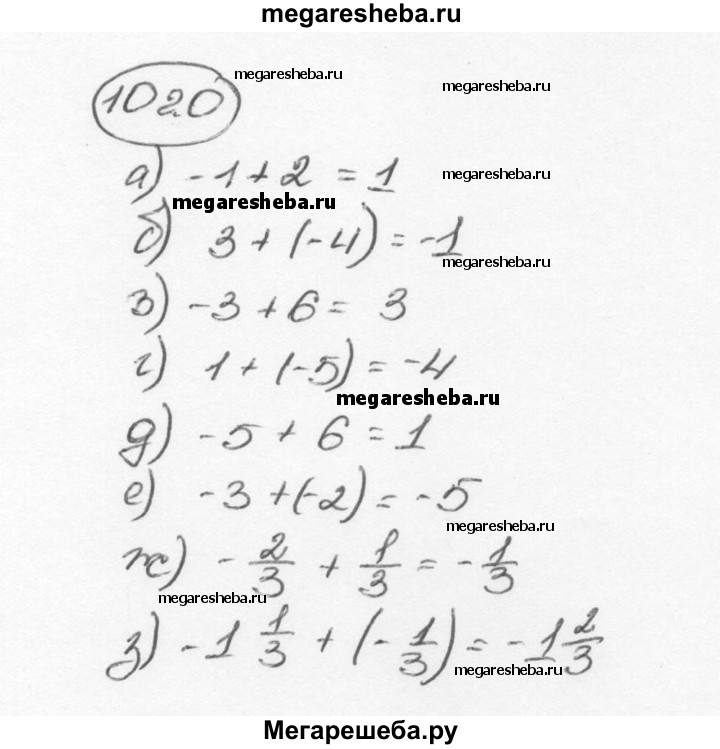 megaresheba.ru
1020 megaresheba.ru
megaresheba.ru
а) -1 + 2 = 1 megaresheba.ru
megaresheba.ru
б) 3 + (-4) = -1
megaresheba.ru
в) -3 + 6 = 3
г) 1 + (-5) = -4
megaresheba.ru
д) -5 + 6 = 1
е) -3 + (-2) = -5
megaresheba.ru
ж) - 2/3 + 1/3 = - 1/3
megaresheba.ru
з) -1 1/3 + (- 1/3) = -1 2/3
megaresheba.ru
Мегарешеба.ру